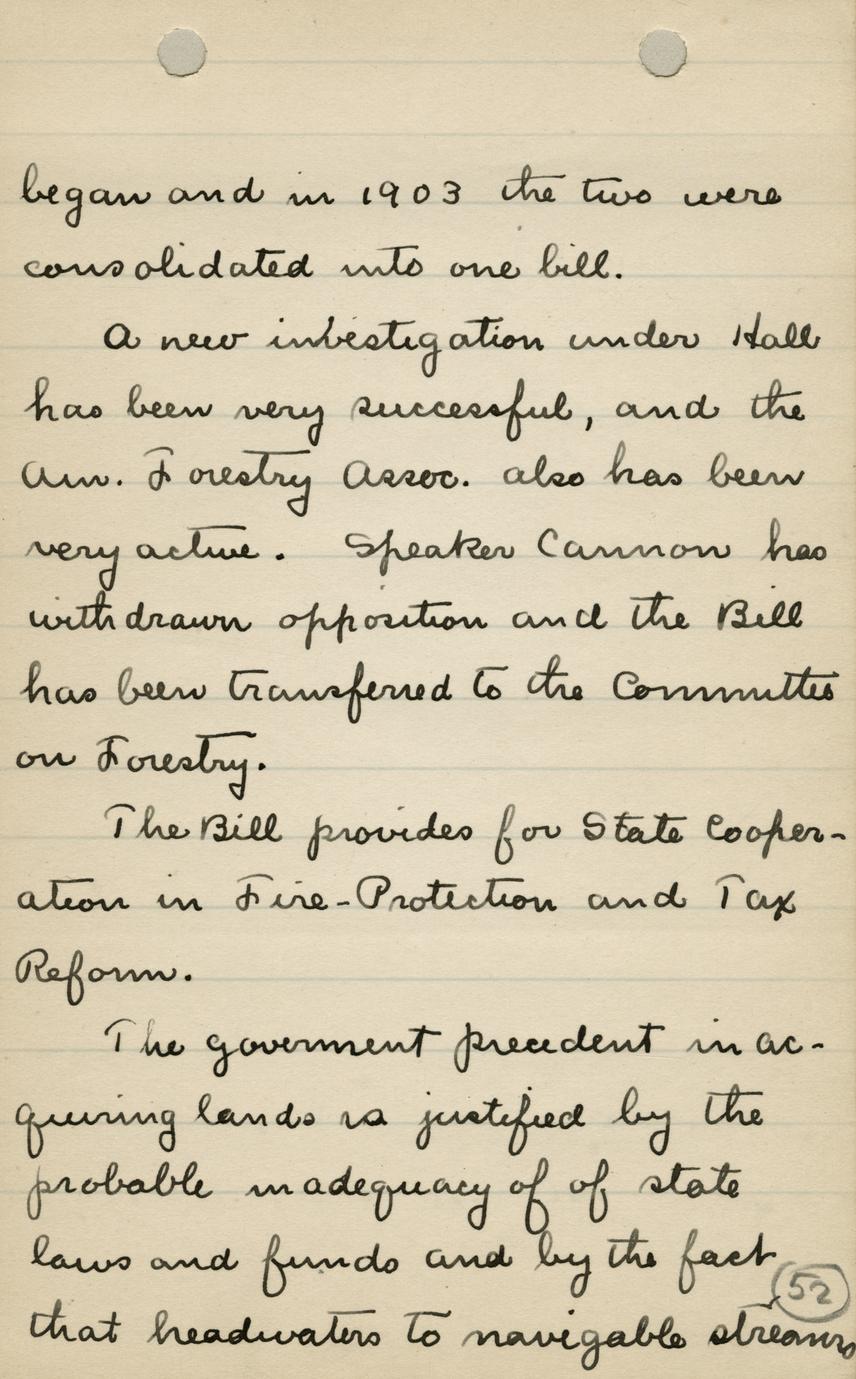 began and in 1903 the two were
consolidated into one bill.
A new investigation under Hall
has been very successful, and the
Am. Forestry Assoc. also has been
very active. Speaker Cannon has
withdrawn opposition and the Bill
has been transferred to the Committee
on Forestry.
The Bill provides for State Cooper-
ation in Fire-Protection and Tax
Reform.
The goverment precedent in ac-
quiring lands is justified by the
probable inadequacy of of state
laws and funds and by the fact
52
that headwaters to navigable streams